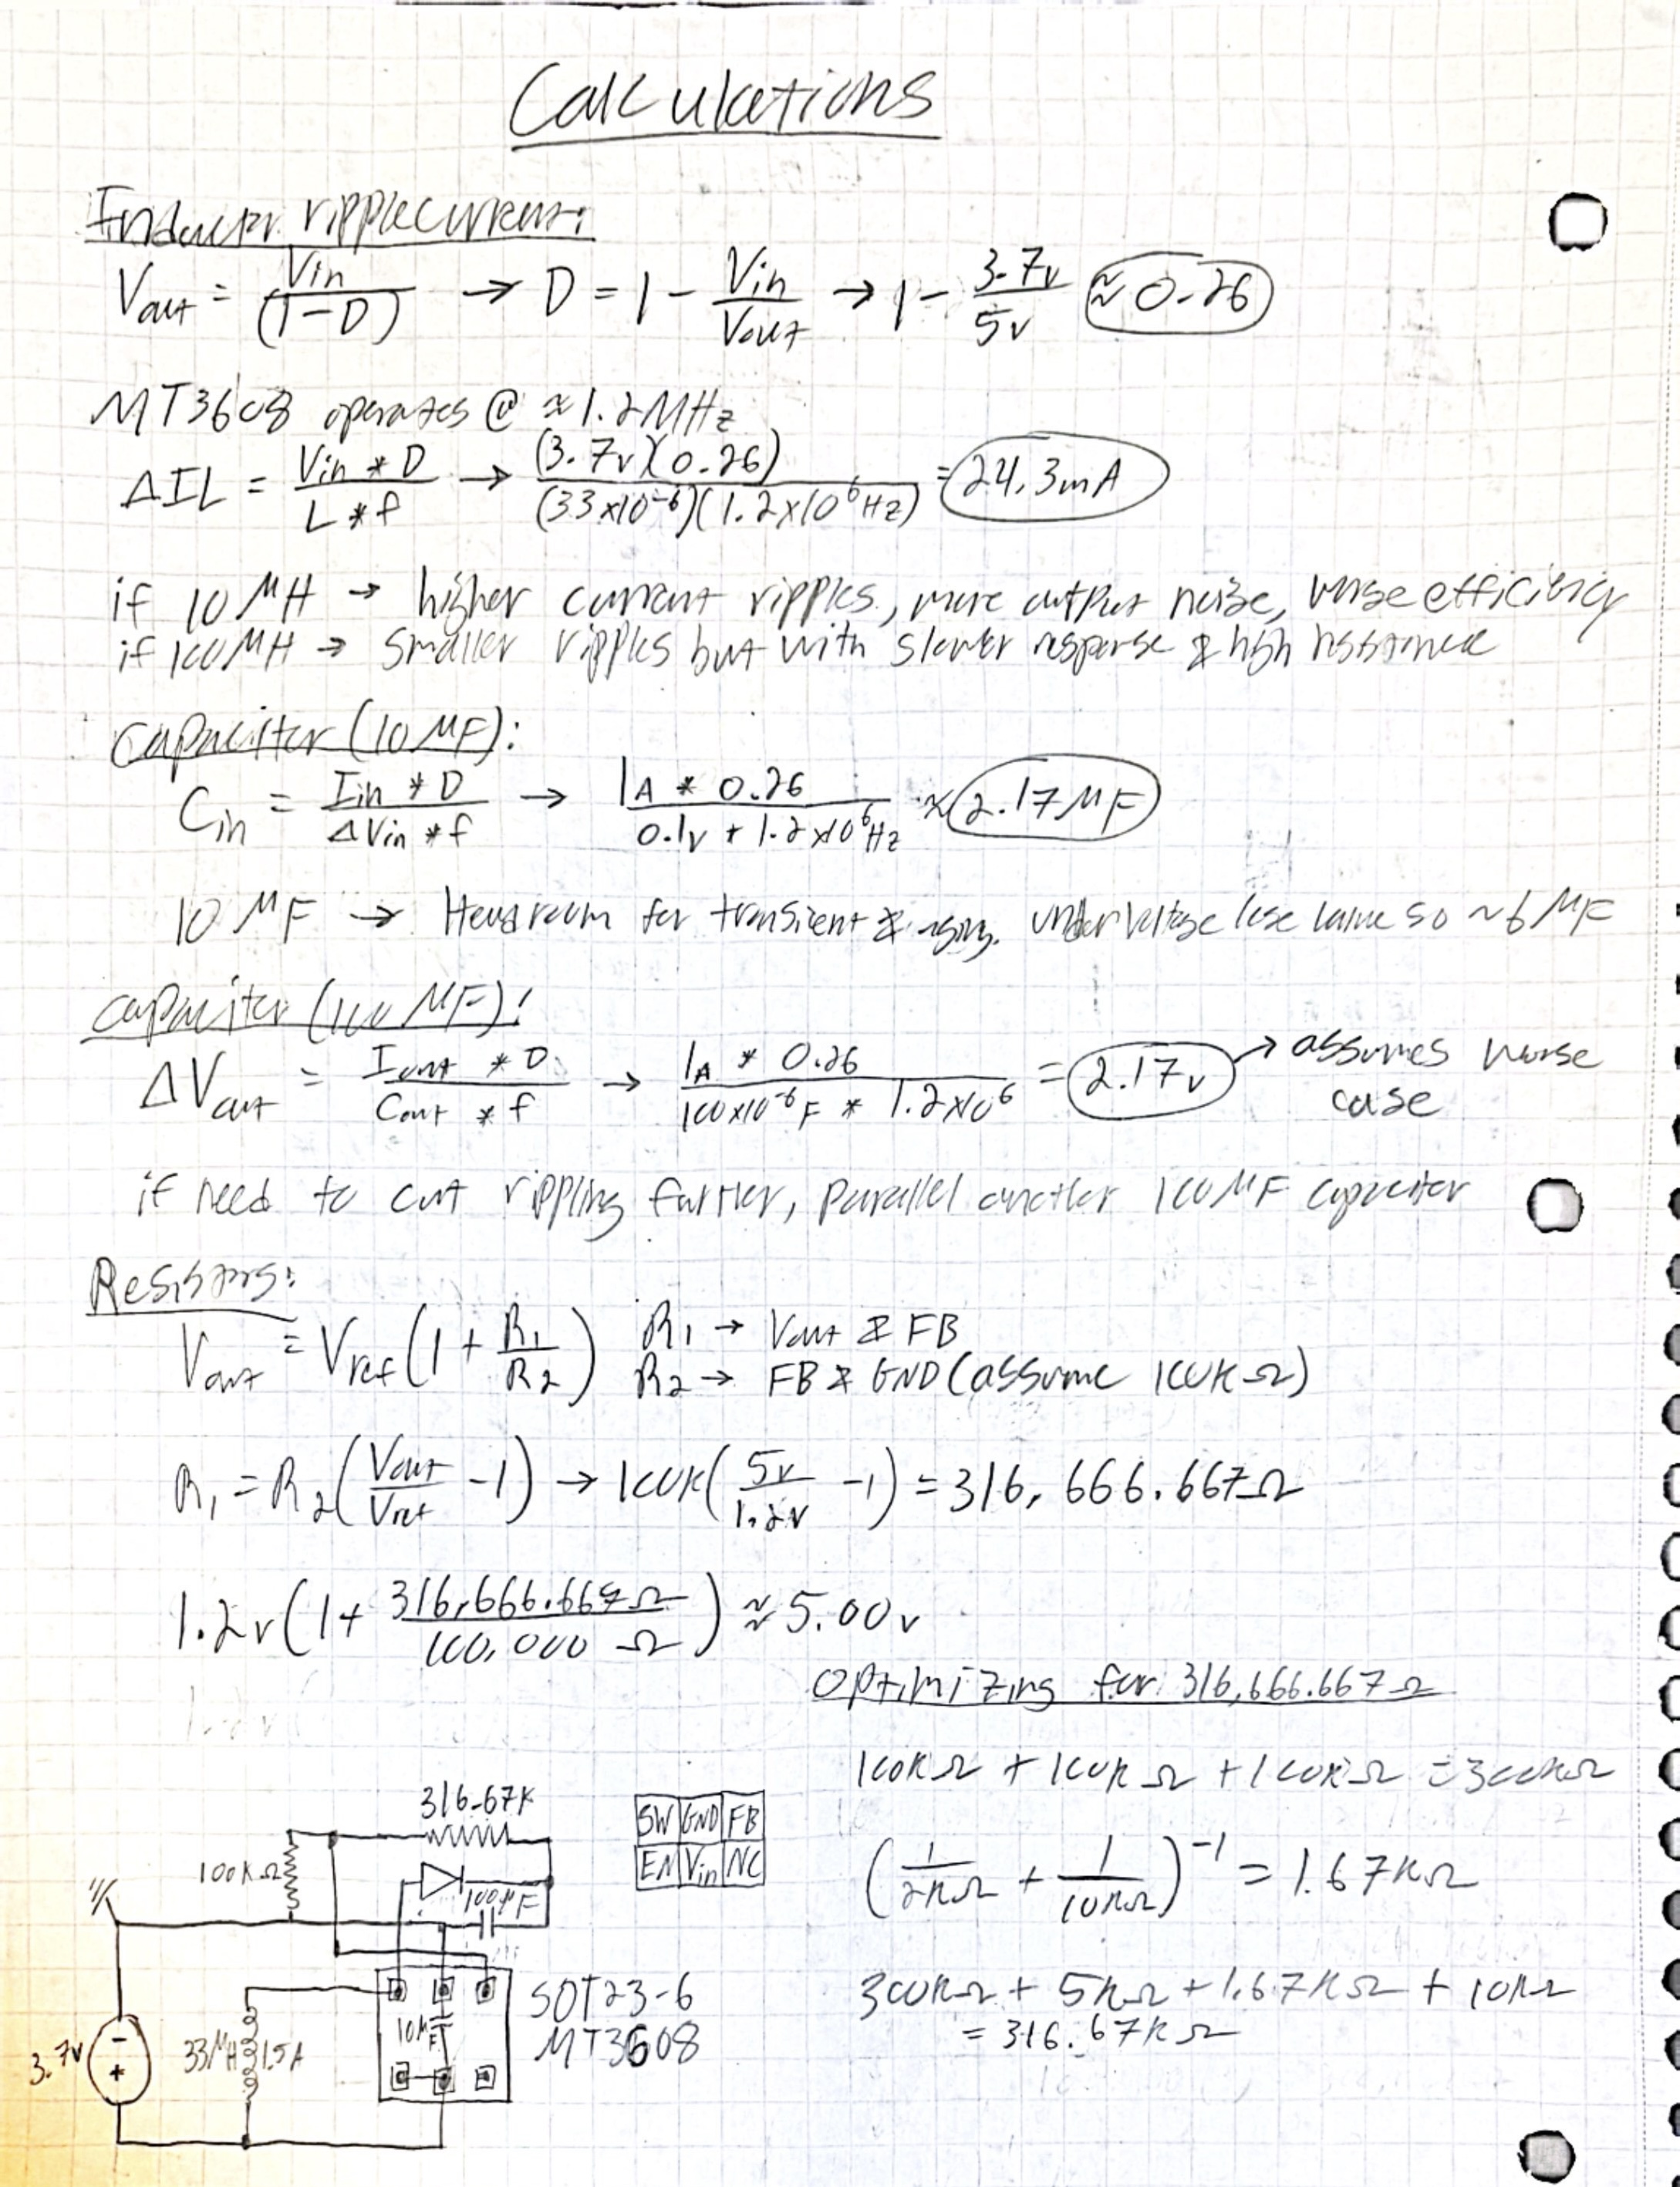 Calculations
Inductor ripple current:
Vout = Vin/(1-D) → D = 1 - Vin/Vout → 1 - 3.7v/5v ≈ 0.26
MT3608 operates @ ≈1.2MHz
ΔIL = Vin * D/L * f → (3.7v)(0.26)/(33x10^-6)(1.2x10^6 Hz) = 24.3mA
if 10 μH → higher current ripples, more output noise, worse efficiency
if 100μH → smaller ripples but with slower response & high resistance
Capacitor (10 μF):
Cin = Iin * D/ΔVin * f → 1A * 0.26/0.1v * 1.2x10^6 Hz ≈ 2.17μF
10 μF → Headroom for transient & aging. under voltage lose value so ~6 μF
Capacitor (100 μF):
ΔVout = Iout * D/Cout * f → 1A * 0.26/100x10^-6 F * 1.2x10^6 = 2.17v → assumes worse
case
if need to cut rippling further, parallel another 100μF capacitor
Resistors:
Vout = Vref(1 + R1/R2) R1 → Vout & FB
R2 → FB & GND (assume 100KΩ)
R1 = R2(Vout/Vref - 1) → 100K(5v/1.2v - 1) = 316,666.667Ω
1.2v(1 + 316,666.667Ω/100,000 Ω) ≈ 5.00v
Optimizing for 316,666.667Ω
100KΩ + 100KΩ + 100KΩ = 300KΩ
(1/2KΩ + 1/10KΩ)^-1 = 1.67KΩ
300KΩ + 5KΩ + 1.67KΩ + 10KΩ
= 316.67KΩ
316.67K
SW GND FB
EN Vin NC
100KΩ
100μF
SOT23-6
MT3608
10μF
3.7v
-
+
33μH 1.5A